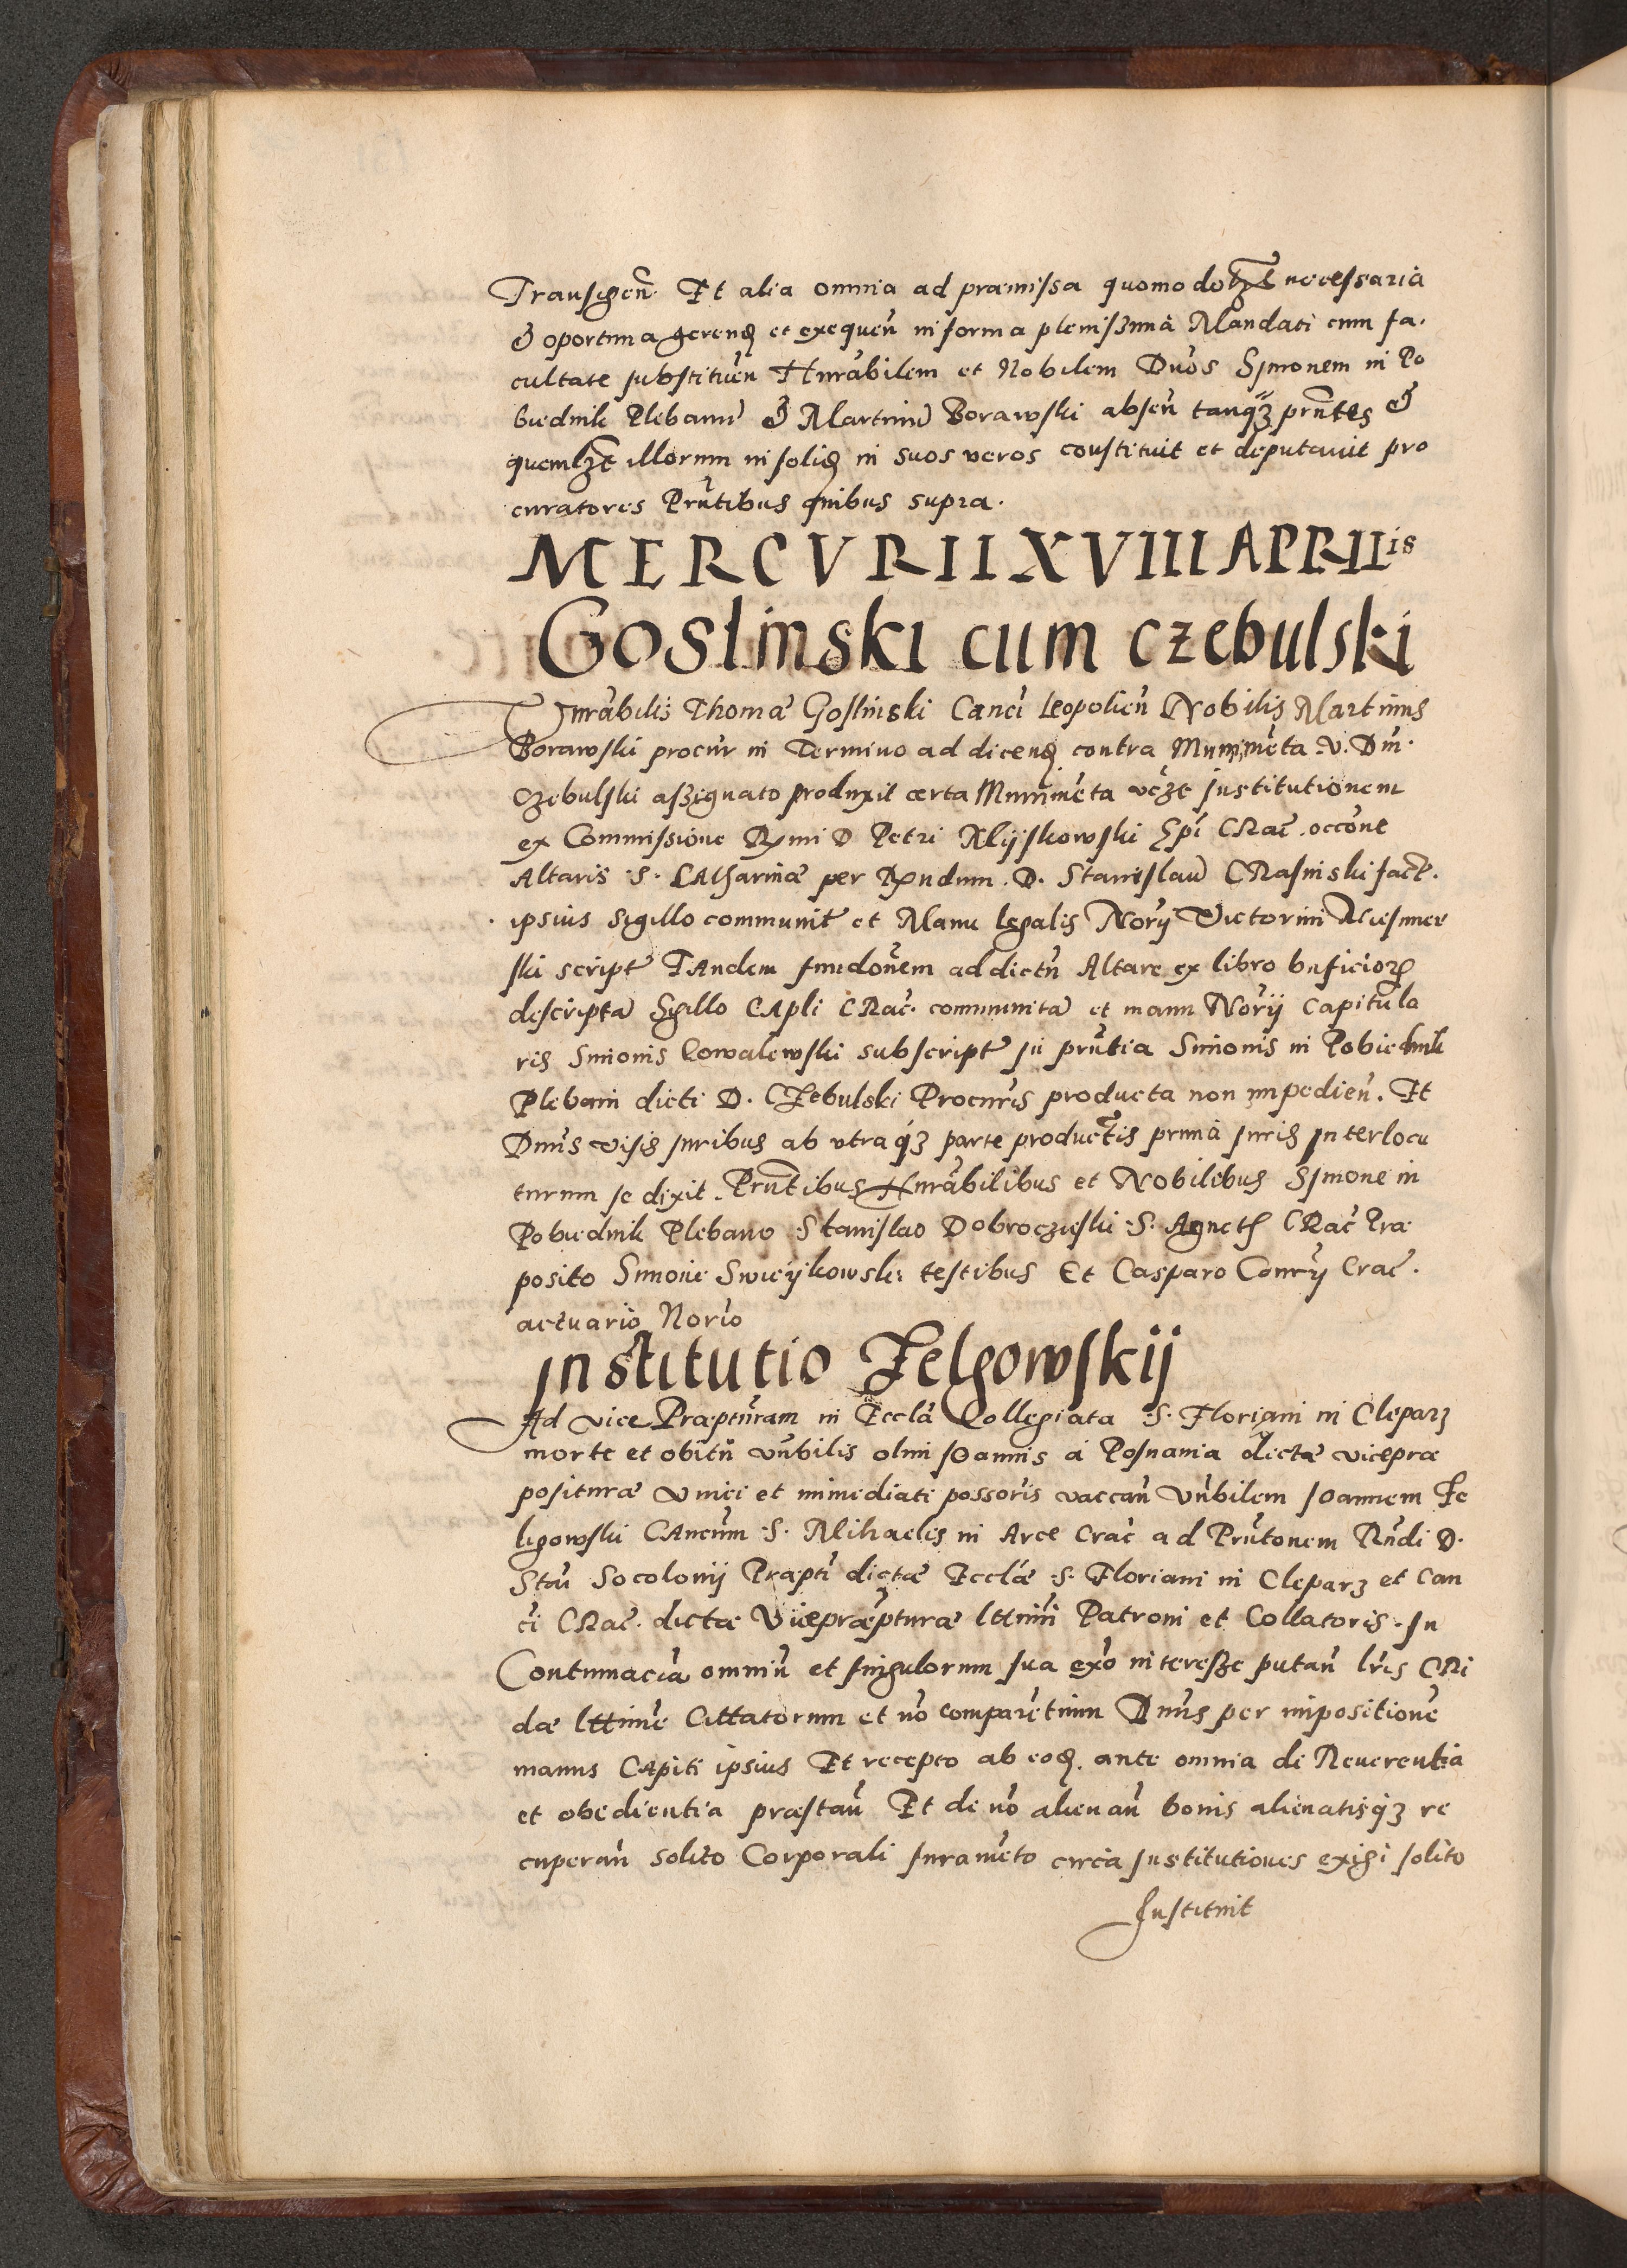 Transigen̄ Et alia omnia ad præmissa quomodolꝫt necessaria
& oportuna gerend et exequen̄ in forma plenissima Mandati cum fa-
cultate substituen̄ Hnrabilem et Nobilem Dnos Simonem in Po
biednik Plebanū & Martinū Borawski absen̄ tanqꝫ prntes &
quemlꝫt illorum in solid in suos veros constituit et deputavit pro
curatores Prntibus quibus supra.
MERCVRII XVIII APRILis
Goslinski cum czebulski
Hnrabilis Thomæ Goslinski Canci Leopolien̄ Nobilis Martinus
Borawski procur in Termino ad dicend contra Munimēta V. Dni.
Czebulski assignato produxit certa Munimēta vcꝫt Institutionem
ex Commissione Rmi D Petri Mijskowski Epi CRac. occone
Altaris S. CAtharinæ per Rndum. D. Stanislaū CRasinski fact.
ipsius Sigillo communit et Manu legalis Norij Victorini
ski script TAndem fundōnem ad dictū Altare ex libro bnficiorꝫ
descriptā Sigillo CApli CRac. communitā et manu Norij Capitula
ris Simonis Cowalewski subscript In prntia Simonis in Pobiednik
Plebani dicti D. CZebulski Procuris producta non impedien̄. Et
Dnus visis Iuribus ab vtraqꝫ parte productis primā Iuris Interlocu
turum se dixit. Prntibus Hnrabilibus et Nobilibus Simone in
Pobiednik Plebano Stanislao Dobroczieski S. Agnetis CRac Præ
posito Simone Swieijkowski testibus Et Casparo Conrij Crac.
actuario Norio
Institutio Zelgowskij
Ad vice Præpturam in Eccla Collegiata S. Floriani in Cleparꝫ
morte et obitū vnbilis olim IOannis a Posnania dictæ vicepræ
posituræ Vnici et immediati possoris vaccan̄ Vnbilem IOannem Ze
ligowski CAncum S. Mihaelis in Arce Crac ad Prntonem Rndi D.
Stan̄ Socolonij Præpti dictæ Ecclæ S. Floriani in Cleparꝫ et Can
ci CRac. dictæ Vicepræpturæ lttimi Patroni et Collatoris. In
Contumaciā omniū et singulorum sua exo interesse putan̄ lris CRi
dæ lttime Cittatorum et nō comparētium Dnus per impositionē
manus CApiti ipsius Et recepto ab eod. ante omnia de Reuerentia
et obedientia præstan̄ Et de nō alienan̄ bonis alienatisqꝫ re
cuperan̄ solito Corporali Iuramēto circa Institutiones exigi solito
Instituit